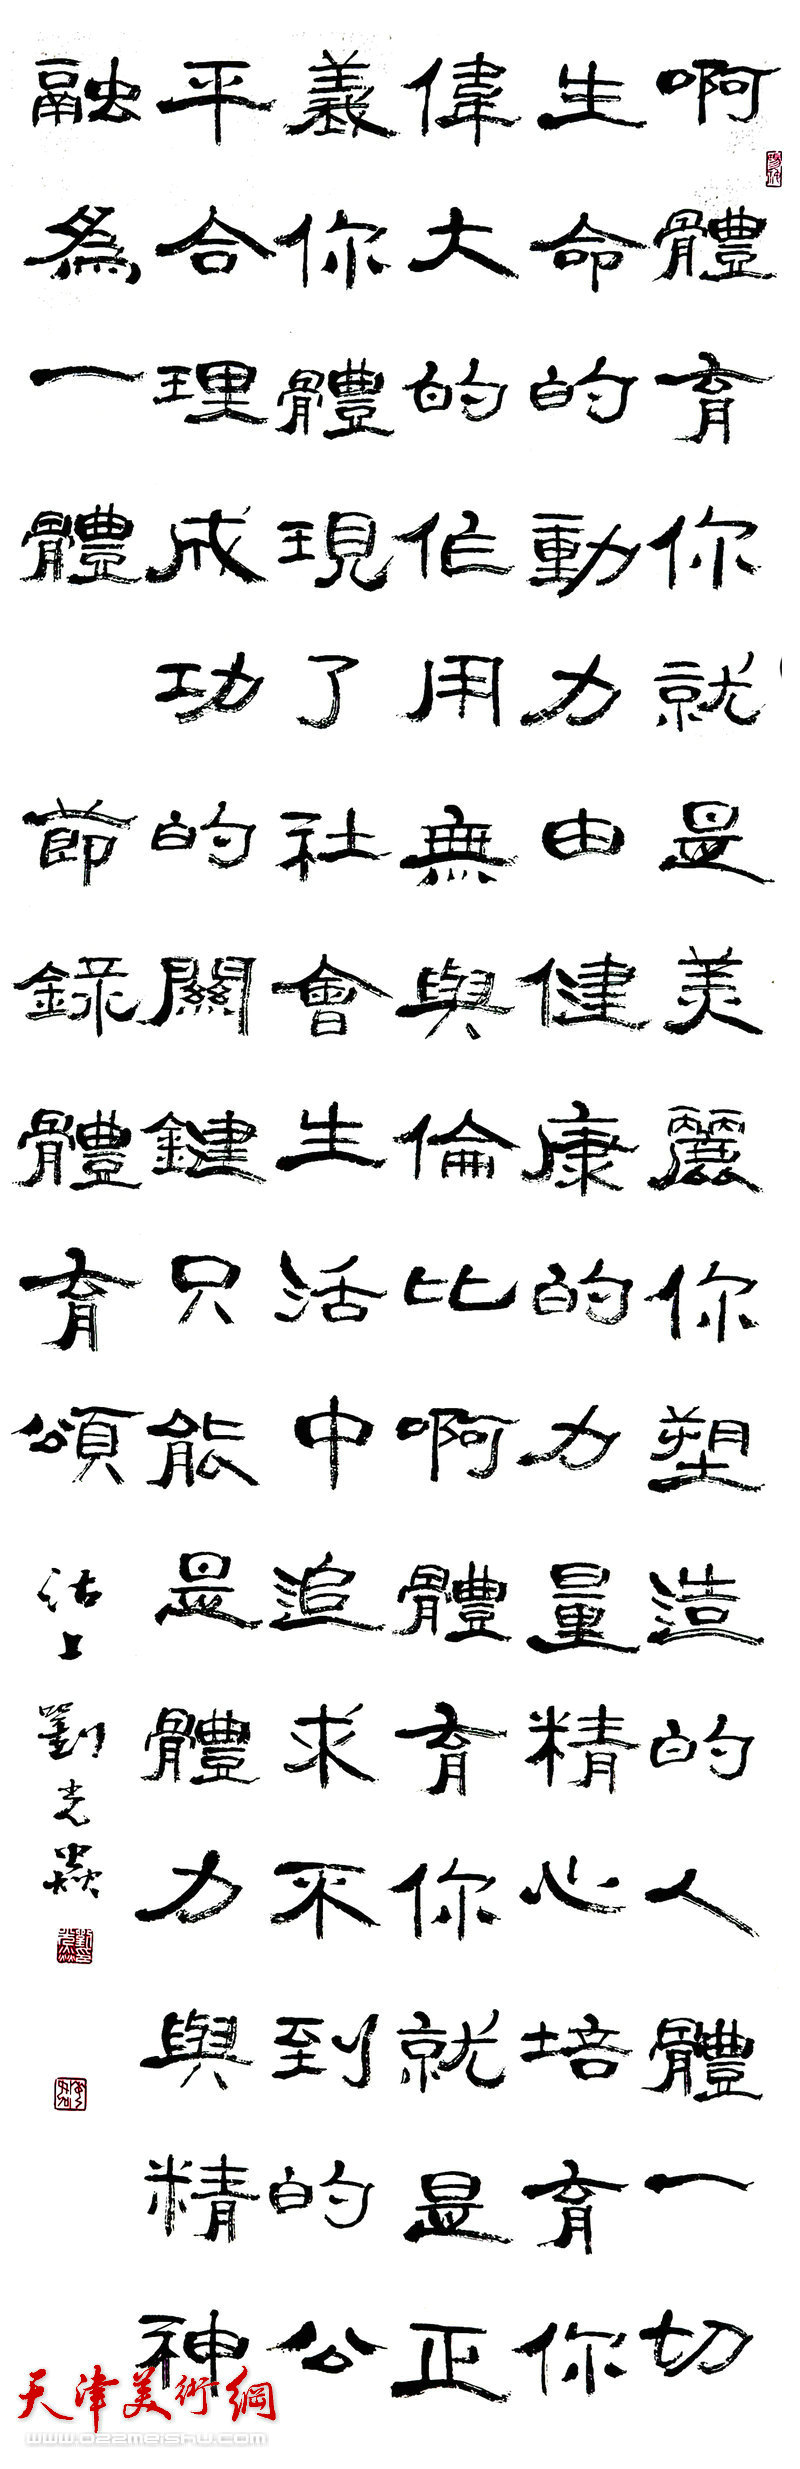 啊體育你就是美麗你塑造的人體一切
生命的動力由健康的力量精心培育你
偉大的作用無與倫比啊體育你就是正
義你體現了社會生活中追求不到的公
平合理成功的關鍵只能是體力與精神
融為一體 節錄體育頌 沽上劉光
天津美術網
www.022meishu.com